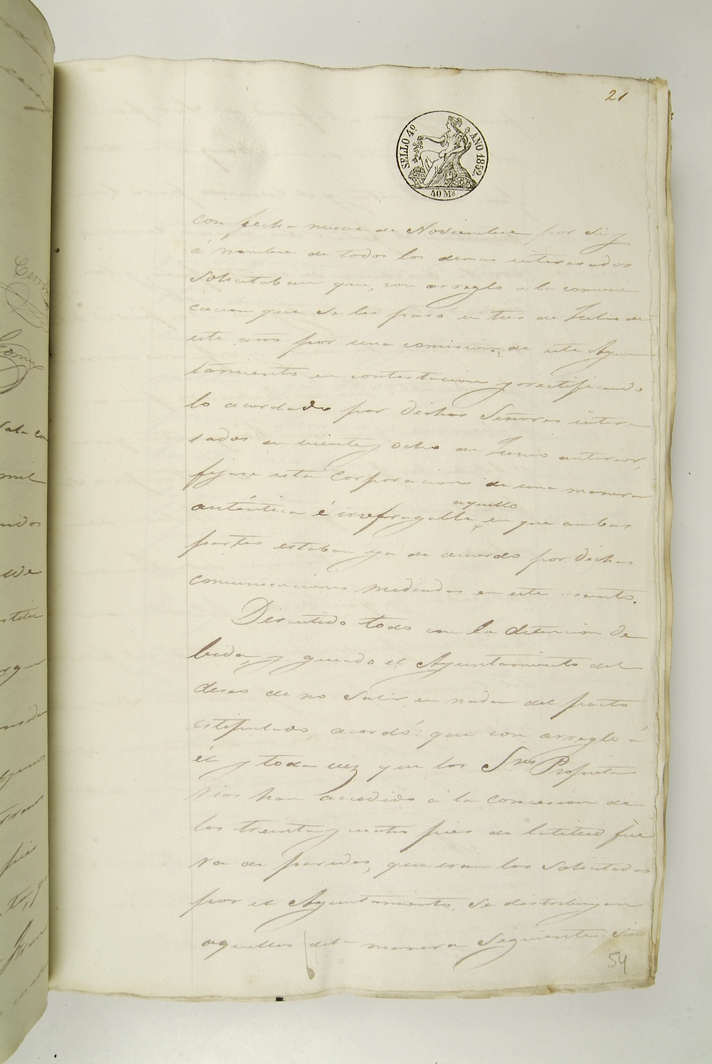 21
SELLO 4º AÑO 1852.
40 Ms
con fecha nueve de Noviembre, por si y
á nombre de todos los demas interesados
solicitaban que, con arreglo a la comuni
cacion que se les pasó en tres de Julio de
este año por una comision de este Ayun
tamiento en contestacion y rectificando
lo acordado por dichos Señores intere
sados en veinte y ocho de Junio anterior,
fijase esta Corporacion de una manera
auténtica é irrefragable aquello en que ambas
partes estaban ya de acuerdo por dichas
comunicaciones mediadas en este asunto.
Discutido todo con la detencion de
bida, y guiado el Ayuntamiento del
deseo de no salir en nada del pacto
estipulado, acordó: que con arreglo á
él y toda vez que los Sres Propieta
rios han accedido á la concesion de
los treinta y cuatro pies de latitud fue
ra de paredes, que eran los solicitados
por el Ayuntamiento, se distribuyan
aquellos de la manera siguiente:
54